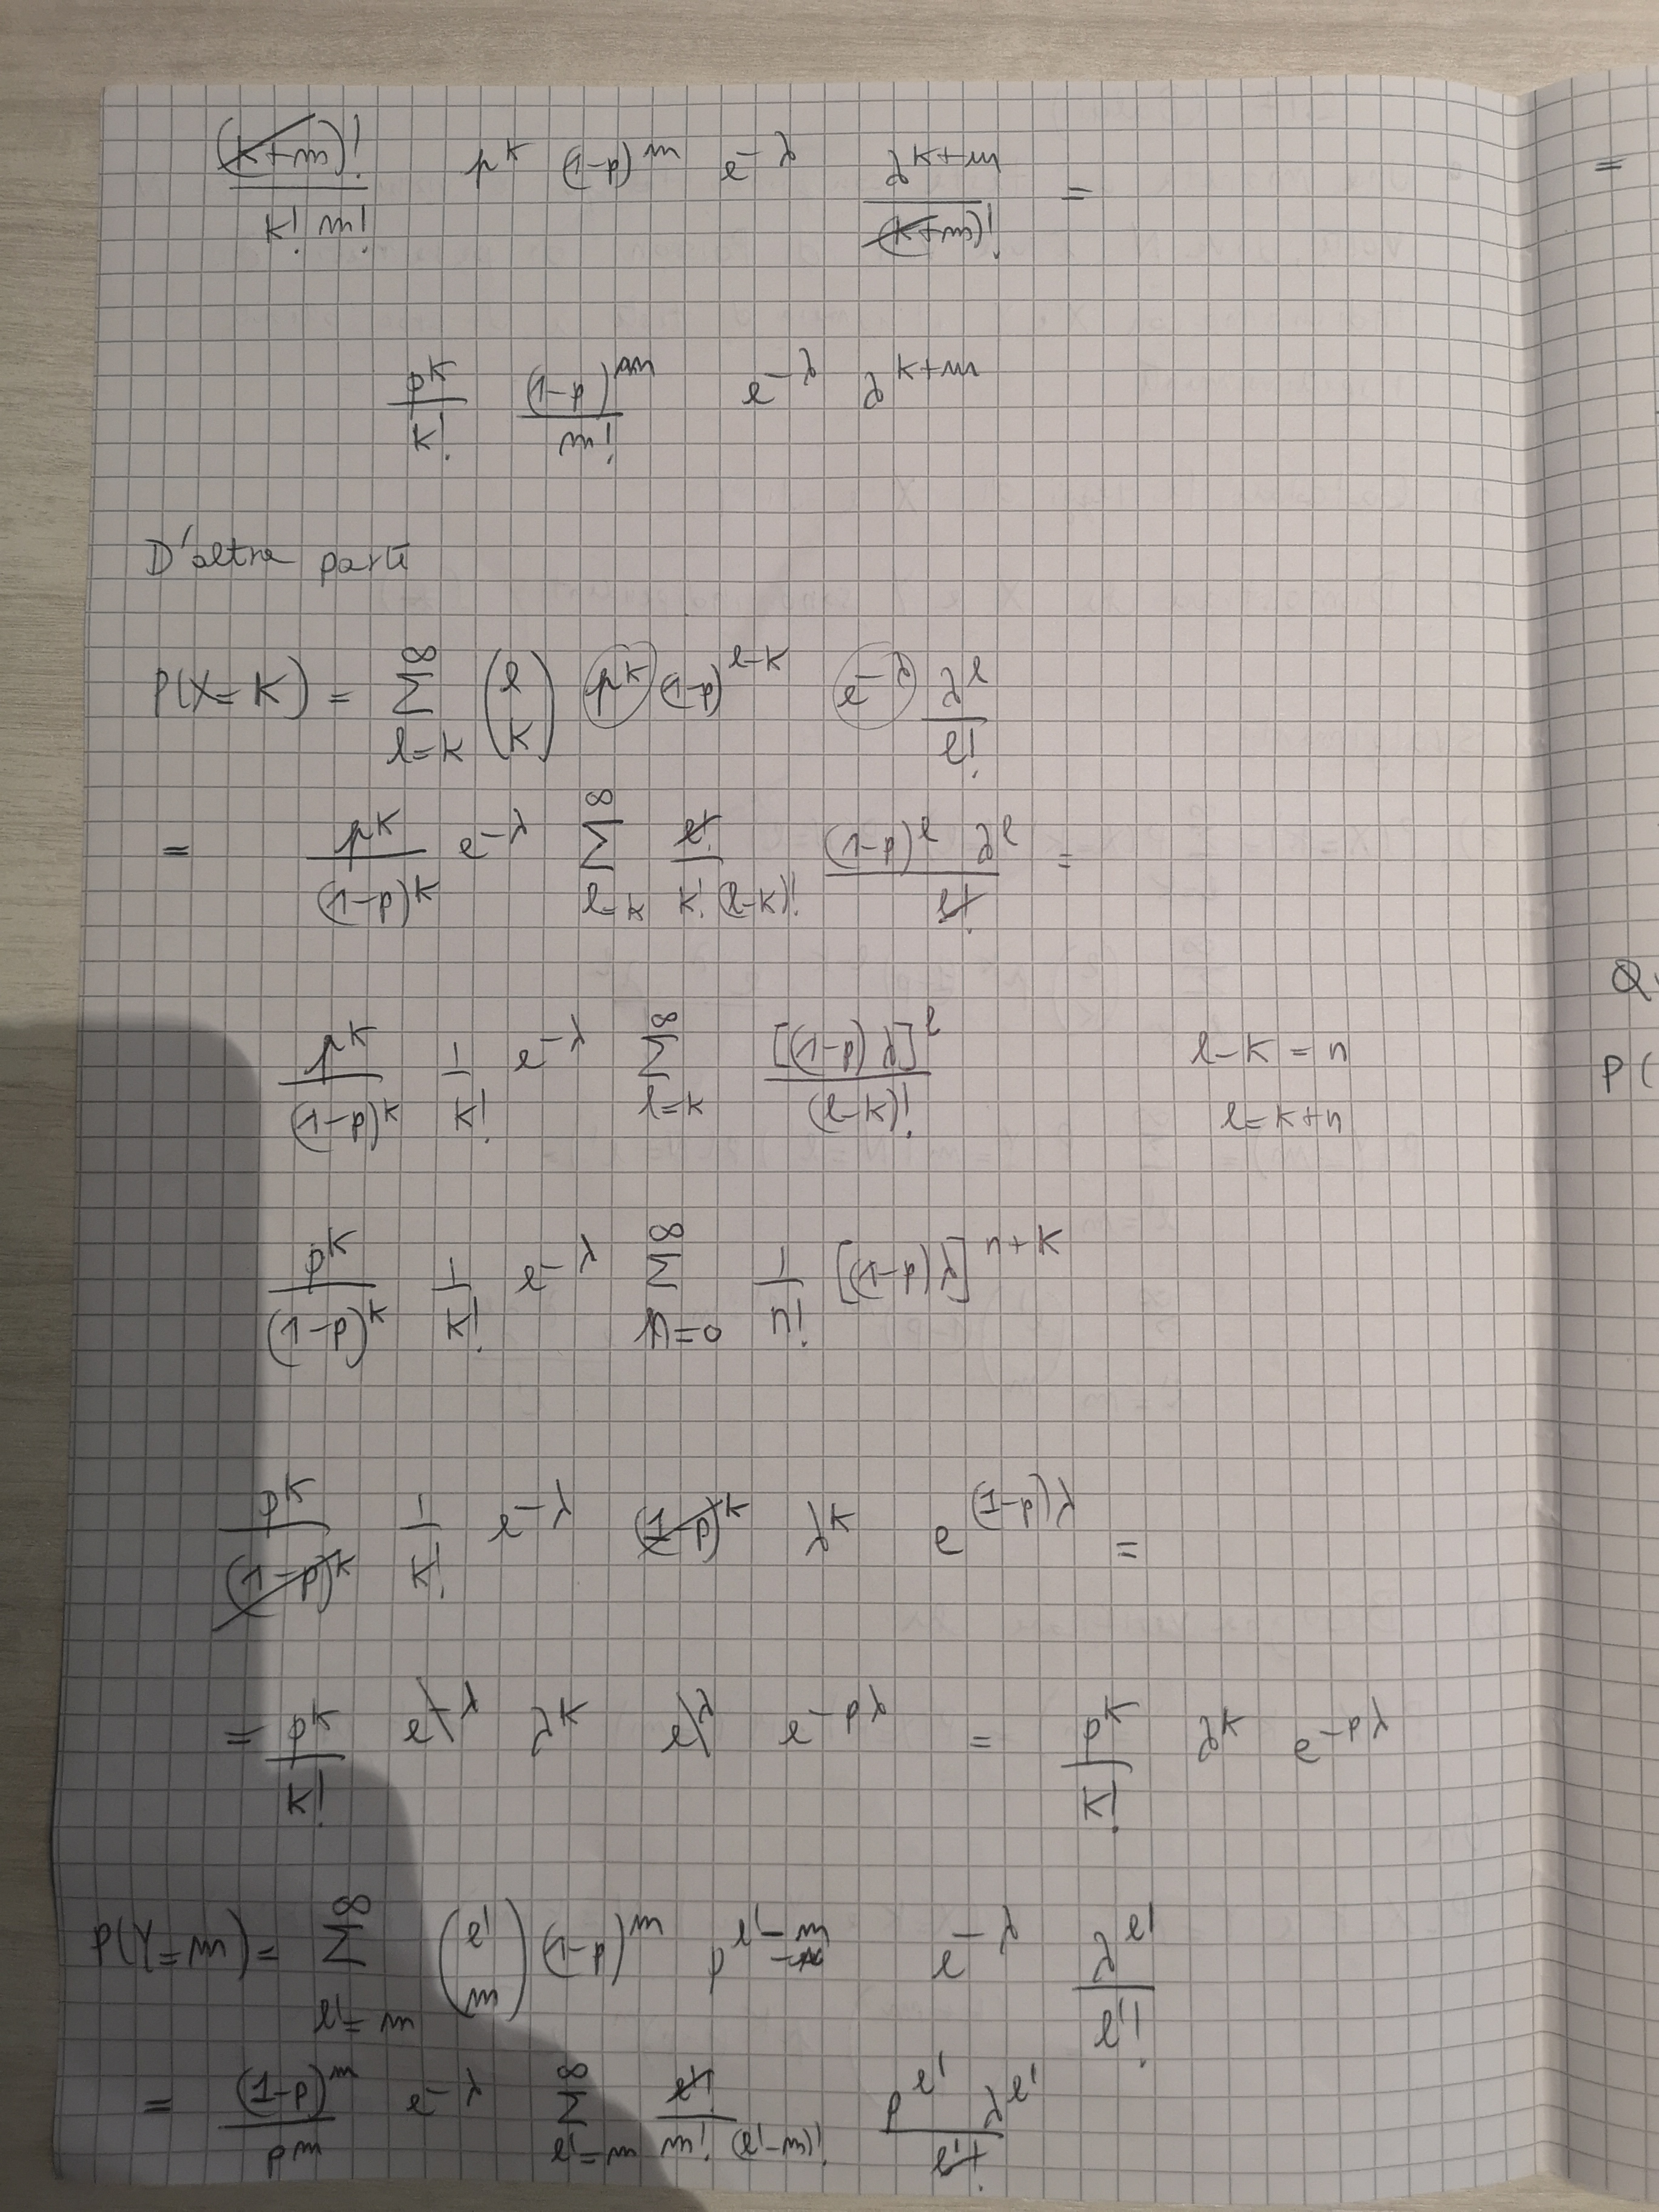 (k+m)!/(k! m!) p^k (1-p)^m e^-λ λ^(k+m)/(k+m)! =
p^k/k! (1-p)^m/m! e^-λ λ^(k+m)
D'altra parte
P(X=K) = ∑_{l=k}^∞ (l K) p^k (1-p)^(l-k) e^-λ λ^l/l!
= p^k/(1-p)^k e^-λ ∑_{l=k}^∞ l!/(k! (l-k)!) (1-p)^l λ^l/l! =
p^k/(1-p)^k 1/k! e^-λ ∑_{l=k}^∞ [(1-p)λ]^l/(l-k)! l-k = n
l=k+n
p^k/(1-p)^k 1/k! e^-λ ∑_{n=0}^∞ 1/n! [(1-p)λ]^(n+k)
p^k/(1-p)^k 1/k! e^-λ (1-p)^k λ^k e^((1-p)λ) =
= p^k/k! e^-λ λ^k e^λ e^(-pλ) = p^k/k! λ^k e^(-pλ)
P(Y=m) = ∑_{l'=m}^∞ (l' m) (1-p)^m p^(l'-m) e^-λ λ^l'/l'!
= (1-p)^m/p^m e^-λ ∑_{l'=m}^∞ l'!/(m! (l'-m)!) p^l' λ^l'/l'!
=
P(